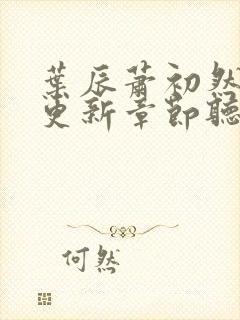 葉辰蕭初然
更新章節聽
何然